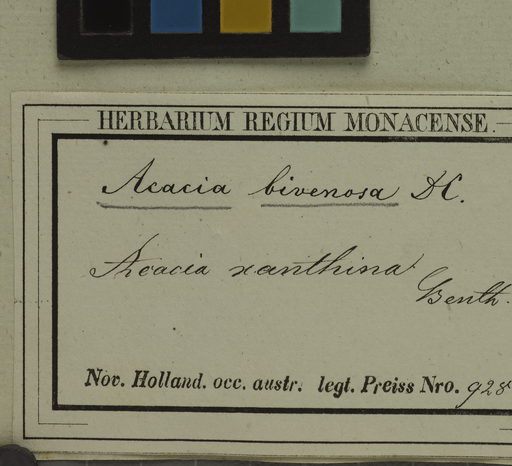 HERBARIUM REGIUM MONACENSE.
Acacia bivenosa DC.
Acacia xanthina
Benth.
Nov. Holland. occ. austr. legt. Preiss Nro. 928